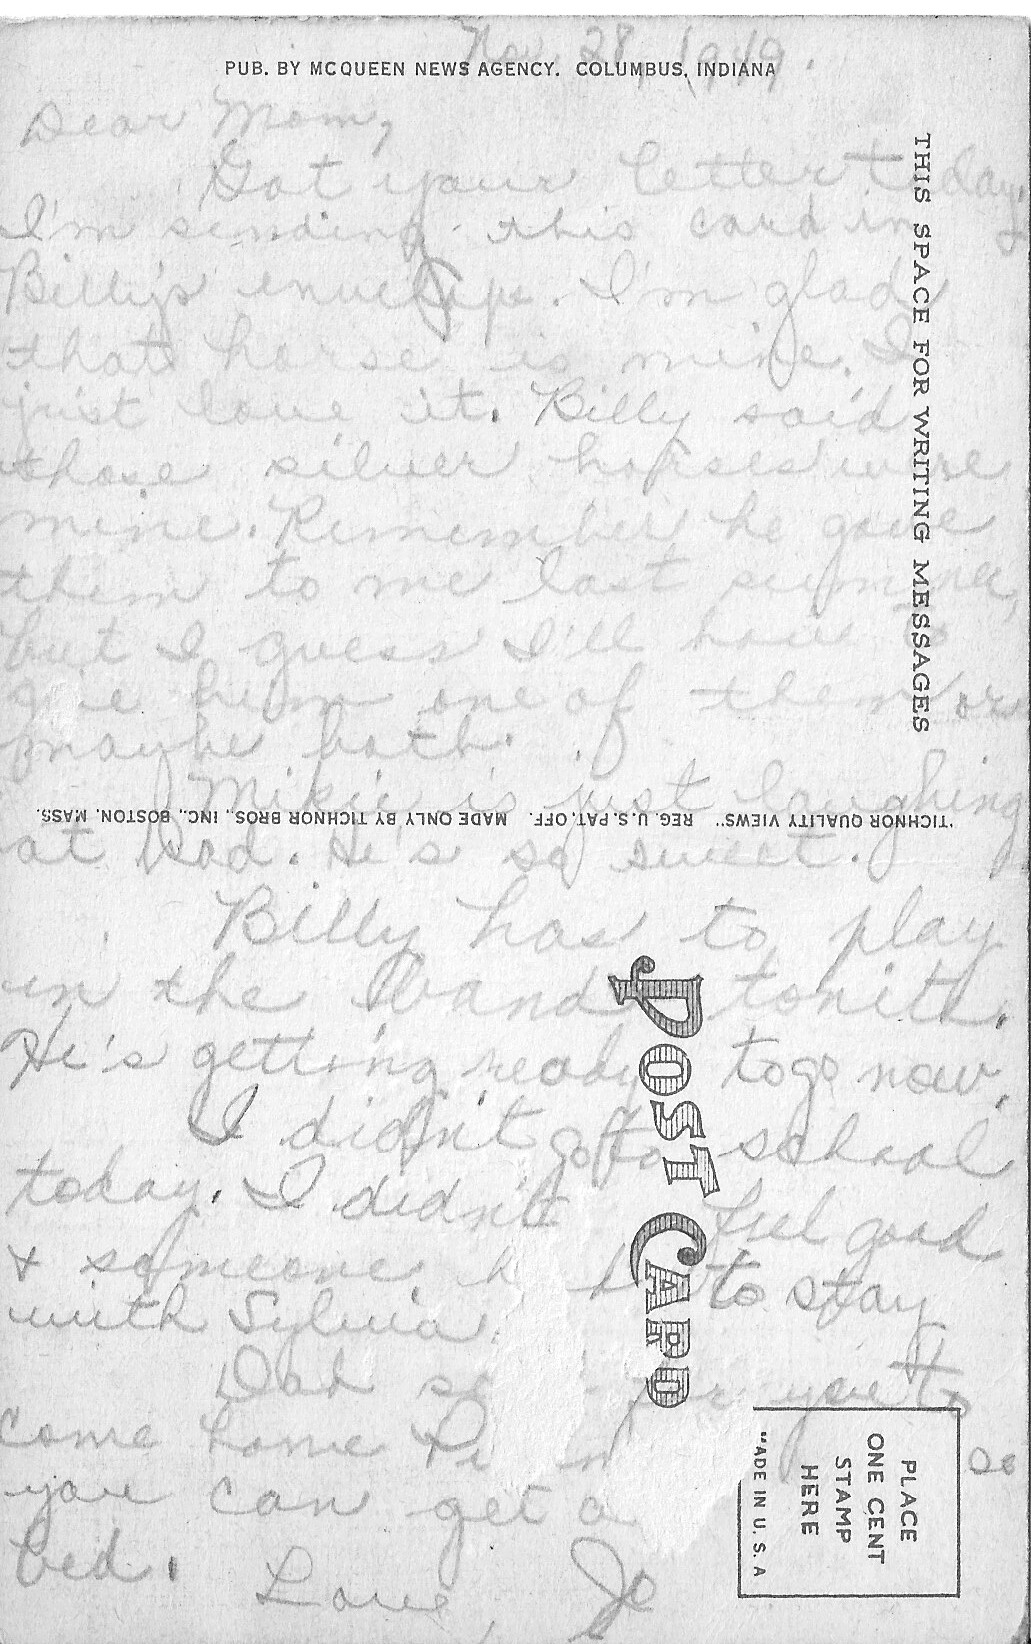 Nov. 28, 1949.
PUB. BY MCQUEEN NEWS AGENCY. COLUMBUS, INDIANA
Dear Mom,
Got your letter today.
I'm sending this card in
Billy's envelope. I'm glad
that horse is mine. I
just love it. Billy said
those silver horses were
mine. Remember he gave
them to me last summer,
but I guess I'll have to
give him one of them or
maybe both.
Mikie is just laughing
at Dad. He's so sweet.
Billy has to play
in the band tonite.
He's getting ready to go now.
I didn't go to school
today. I didn't feel good
& someone had to stay
with Sylvia.
Dad for you to
come home so
you can get a
bed.
Love, Jo
THIS SPACE FOR WRITING MESSAGES
"TICHNOR QUALITY VIEWS" REG. U.S. PAT. OFF. MADE ONLY BY TICHNOR BROS., INC., BOSTON, MASS.
POST CARD
PLACE
ONE CENT
STAMP
HERE
MADE IN U.S.A